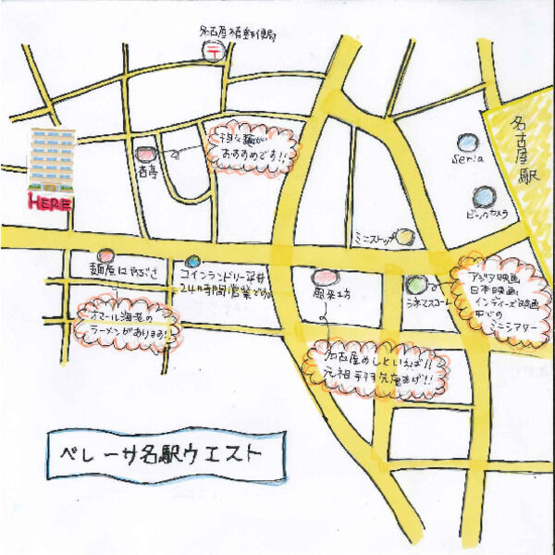 〒
HERE
杏亭
担々麺が
おすすめです!!
名古屋駅
Seria
ビックカメラ
ミニストップ
麺屋はやぶさ
オマール海老の
ラーメンがあります!
コインランドリー平井
24時間営業です。
風来坊
名古屋めしといえば!!
元祖手羽先唐あげ!!
シネマスコーレ
アジア映画
日本映画
インディーズ映画
中心の
ミニシアター
ベレーサ名駅ウエスト